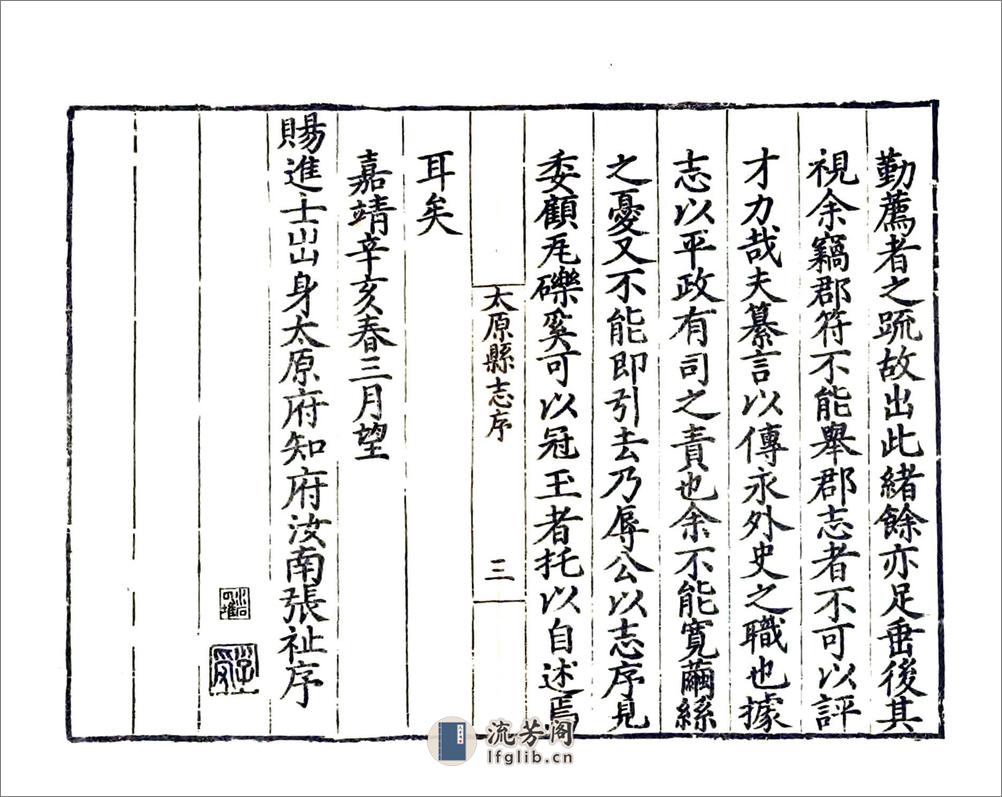 勤薦者之䟽故出此緒餘亦足垂後其
視余竊郡符不能舉郡志者不可以評
才力哉夫纂言以傳永外史之職也據
志以平政有司之責也余不能寬繭絲
之憂又不能即引去乃辱公以志序見
委顧瓦礫奚可以冠玉者托以自述焉
太原縣志序
三
耳矣
嘉靖辛亥春三月望
賜進士出身太原府知府汝南張祉序
流芳阁
lfglib.cn